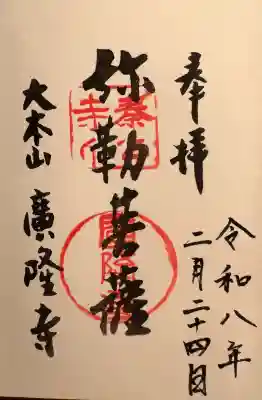 奉拝
令和八年
二月二十四日
弥勒菩薩
大本山 廣隆寺